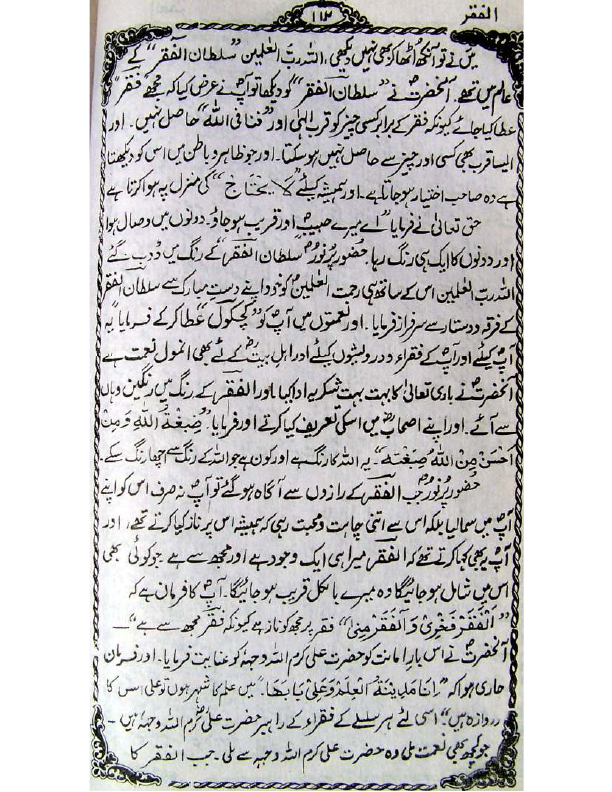 الفقر
۱۱۳
میں نے تو آنکھ اُٹھا کر بھی نہیں دیکھی، اللہ ربّ العٰلمین "سلطان الفقر" کے
عالم میں تھے۔ آنحضرتؐ نے "سلطان الفقر" کو دیکھا تو آپؐ نے عرض کیا کہ مجھے فقر
عطا کیا جائے کیونکہ فقر کے برابر کسی چیز کو قرب الٰہی اور "فنا فی اللہ" حاصل نہیں۔ اور
ایسا قرب بھی کسی اور چیز سے حاصل نہیں ہو سکتا۔ اور جو ظاہر و باطن میں اس کو دیکھتا
ہے وہ صاحب اختیار ہو جاتا ہے۔ اور ہمیشہ کیلئے "لَا یَحْتَاج" کی منزل پہ ہوا کرتا ہے
حق تعالیٰ نے فرمایا "اے میرے حبیبؐ اور قریب ہو جاؤ۔ دونوں میں وصال ہوا
اور دونوں کا ایک ہی رنگ رہا حضور پُر نورؐ "سلطان الفقر" کے رنگ میں ڈوب گئے
اللہ ربّ العٰلمین اس کے ساتھ ہی رحمت العٰلمینؐ کو خود اپنے دستِ مبارک سے سلطان الفقر
کے خرقہ و دستار سے سرفراز فرمایا۔ اور نعمتوں میں آپؐ کو "کچکول" عطا کر کے فرمایا "یہ
آپؐ کیلئے اور آپؐ کے فقراء و درویشوں کیلئے اور اہلِ بیتؓ کے لئے بھی انمول نعمت ہے
آنحضرتؐ نے باری تعالیٰ کا بہت بہت شکریہ ادا کیا اور الفقر کے رنگ میں رنگین وہاں
سے آئے۔ اور اپنے اصحابؓ میں اسکی تعریف کیا کرتے اور فرمایا۔ "صِبْغَۃَ اللہِ وَمَنْ
اَحْسَنُ مِنَ اللہِ صِبْغَۃ"۔ یہ اللہ کا رنگ ہے اور کون ہے جو اللہ کے رنگ سے اچھا رنگ سکے۔
حضور پُر نورؐ جب الفقر کے رازوں سے آگاہ ہو گئے تو آپؐ نہ صرف اس کو اپنے
آپؐ میں سما لیا بلکہ اس سے اتنی چاہت و محبت رہی کہ ہمیشہ اس پر ناز کیا کرتے تھے، اور
آپؐ یہ بھی کہا کرتے تھے کہ الفقر میرا ہی ایک وجود ہے اور مجھ سے ہے جو کوئی بھی
اس میں شامل ہو جائیگا وہ میرے بالکل قریب ہو جائیگا۔ آپؐ کا فرمان ہے کہ
"اَلْفَقْرُ فَخْرِیْ وَالْفَقْرُ مِنِّیْ" فقر پر مجھ کو ناز ہے کیونکہ فقر مجھ سے ہے"۔
آنحضرتؐ نے اس بارِ امانت کو حضرت علی کرم اللہ وجہہ کو عنایت فرمایا۔ اور فرمان
جاری ہوا کہ "اَنَا مَدِیْنَۃُ الْعِلْمِ وَعَلِیٌّ بَابُهَا۔" میں علم کا شہر ہوں تو علی اس کا
دروازہ ہیں"۔ اسی لئے ہر سلسلے کے فقراء کے راہبر حضرت علی کرم اللہ وجہہ ہیں۔
جو کچھ بھی نعمت ملی وہ حضرت علی کرم اللہ وجہہ سے ملی۔ جب الفقر کا